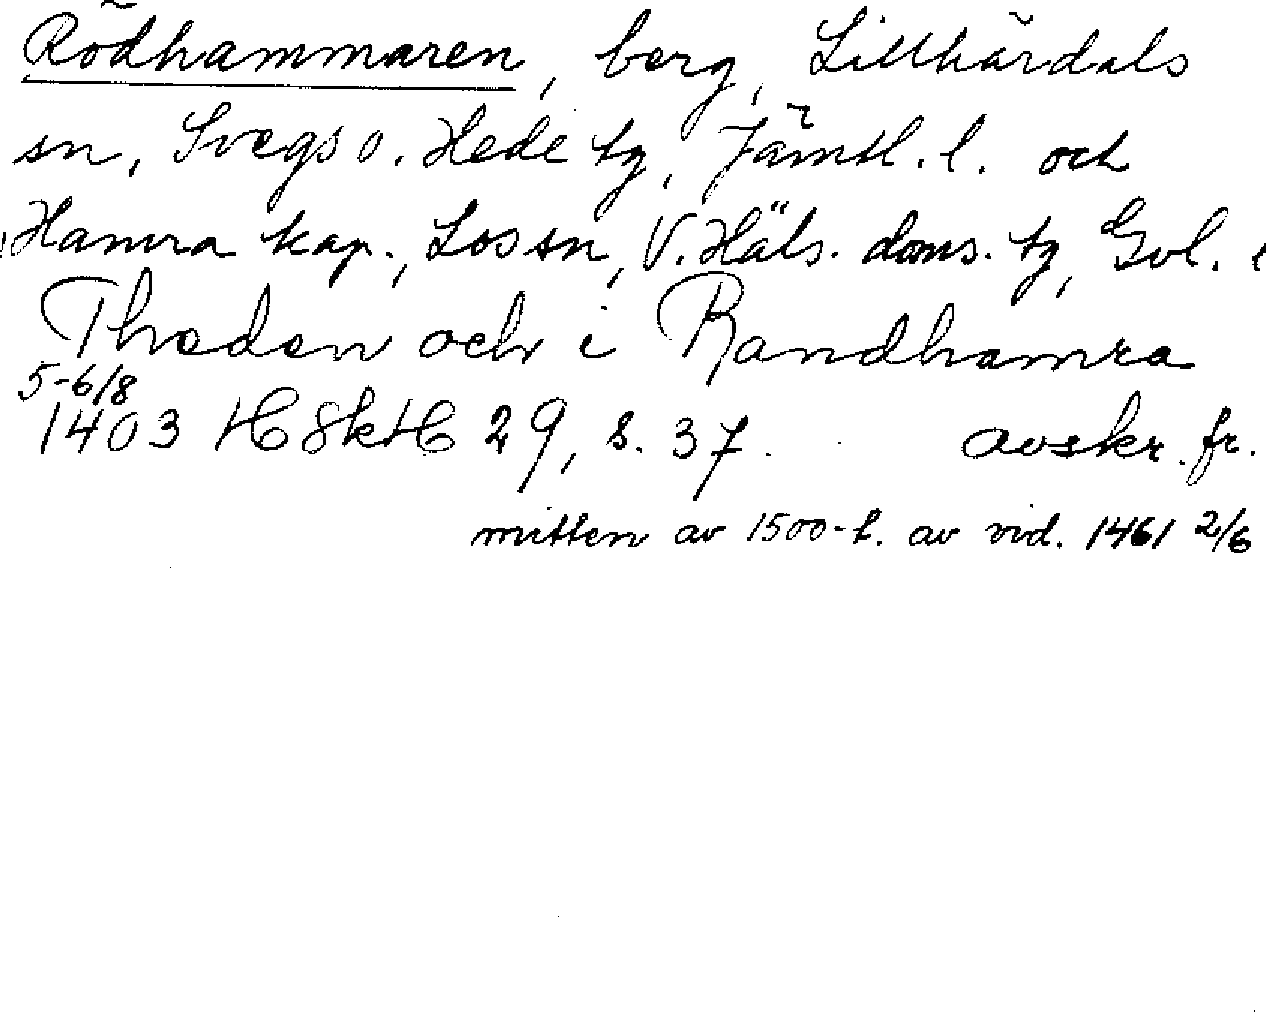 Rödhammaren, berg, Lillhärdals
sn, Svegs o. Hede tg, Jämtl. l. och
Hamra kap., Los sn, V. Häls. doms. tg, Gvl. l
Thæden och i Randhamra
5-6/8
1403 HSkH 29, s. 37. avskr. fr.
mitten av 1500-t. av vid. 1461 2/6